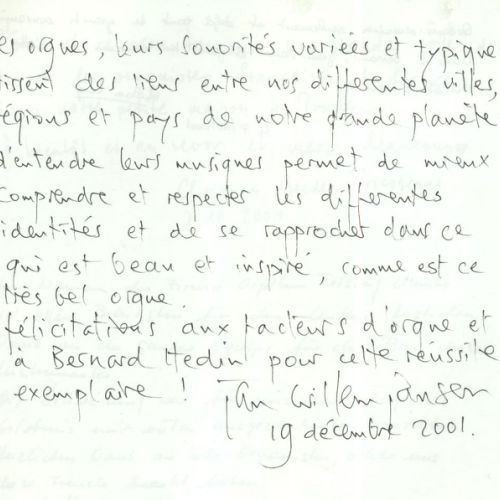 es orgues, leurs sonorités variées et typique
tissent des liens entre nos differentes villes,
régions et pays de notre grande planète
d'entendre leurs musiques permet de mieux
comprendre et respecter les differentes
identités et de se rapprocher dans ce
qui est beau et inspiré, comme est ce
très bel orgue.
félicitations aux facteurs d'orgue et
à Bernard Hedin pour cette réussite
exemplaire ! Jan Willem Jansen
19 décembre 2001.